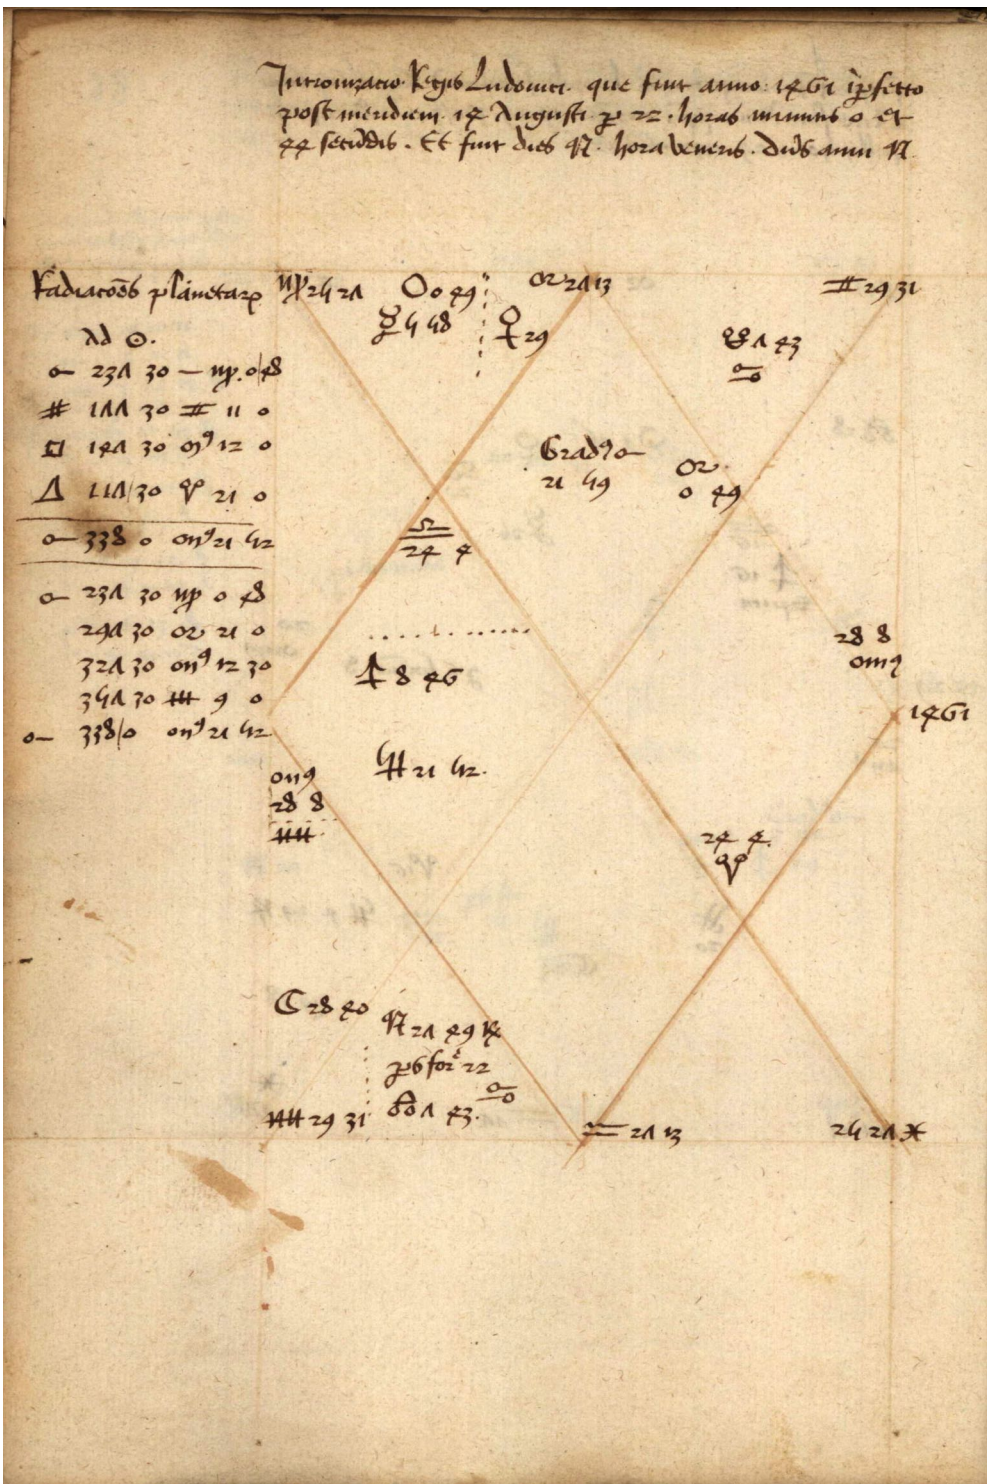 Intronizacio Regis Ludovici que fuit anno 1461 imperfecto
post meridiem 14 Augusti per 22 horas minutis 0 et
44 secundis. Et fuit dies ♃. hora veneris. dominus anni ♃
Radiacōes planetarum
Ad ☉.
☌ 237 30 ♍ 0 48
177 30 ♊ 11 0
□ 147 30 ♉ 12 0
△ 117 30 ♈ 21 0
338 0 21 52
237 30 ♍ 0 48
297 30 21 0
327 30 12 30
357 30 9 0
338 0 21 52
♍ 25 27
☉ 0 49
☿ 5 58
♀ 29
♌ 27 13
♊ 29 31
☊ 7 43
♋
Gradus
21 59
♌
0 49
♎
24 4
♂ 8 46
♄ 21 52
♏
28 8
♐
28 8
♉
1461
24 4
♈
☾ 28 40
♃ 27 49 ℞
pars fortune 22
☋ 7 43
♑
♐ 29 31
♒ 27 13
25 27 ♓